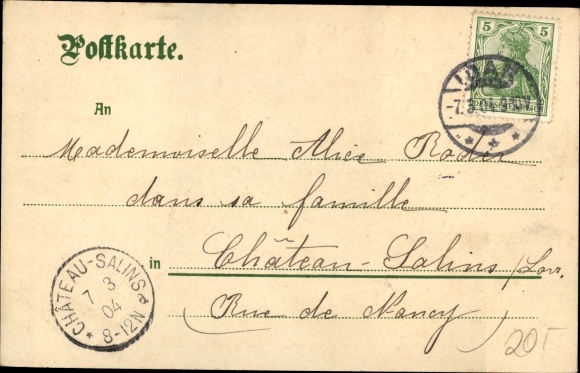 Postkarte.
5 5
IDAR
-7.3.04.9-10V.
An
Mademoiselle Alice Roder
dans sa famille
in Château-Salins /Lorr.
(Rue de Nancy)
CHÂTEAU-SALINS
7 3
04
8-12N
20